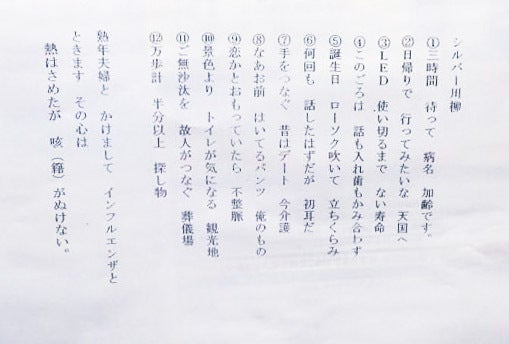 シルバー川柳
①三時間 待って 病名 加齢です。
②日帰りで 行ってみたいな 天国へ
③LED 使い切るまで ない寿命
④このごろは 話も入れ歯もかみ合わず
⑤誕生日 ローソク吹いて 立ちくらみ
⑥何回も 話したはずだが 初耳だ
⑦手をつなぐ 昔はデート 今介護
⑧なあお前 はいてるパンツ 俺のもの
⑨恋かとおもっていたら 不整脈
⑩景色より トイレが気になる 観光地
⑪ご無沙汰を 故人がつなぐ 葬儀場
⑫万歩計 半分以上 探し物
熟年夫婦と かけまして インフルエンザと
ときます その心は
熱はさめたが 咳(籍)がぬけない。